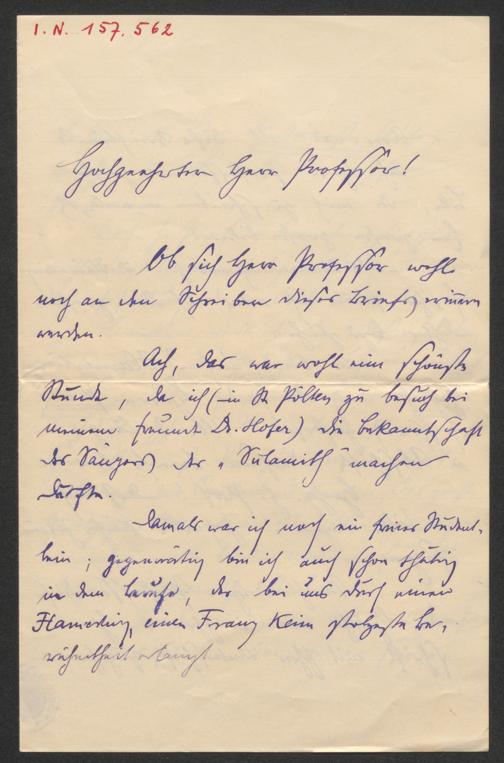 I. N. 157.562
Hochgeehrter Herr Professor!
Ob sich Herr Professor wohl
noch an den Schreiber dieses Briefes erinnern
werden.
Ach, das war wohl eine schönste
Stunde, da ich (in St Pölten zu besuch bei
meinem freunde Dr. Hofer) die bekanntschaft
des Sängers der „Sulamith" machen
durfte.
Damals war ich noch ein freier Student-
lein; gegenwärtig bin ich auch schon thätig
in dem berufe, der bei uns durch einen
Hamerling, einen Franz Keim stolzeste be-
rühmtheit erlangt